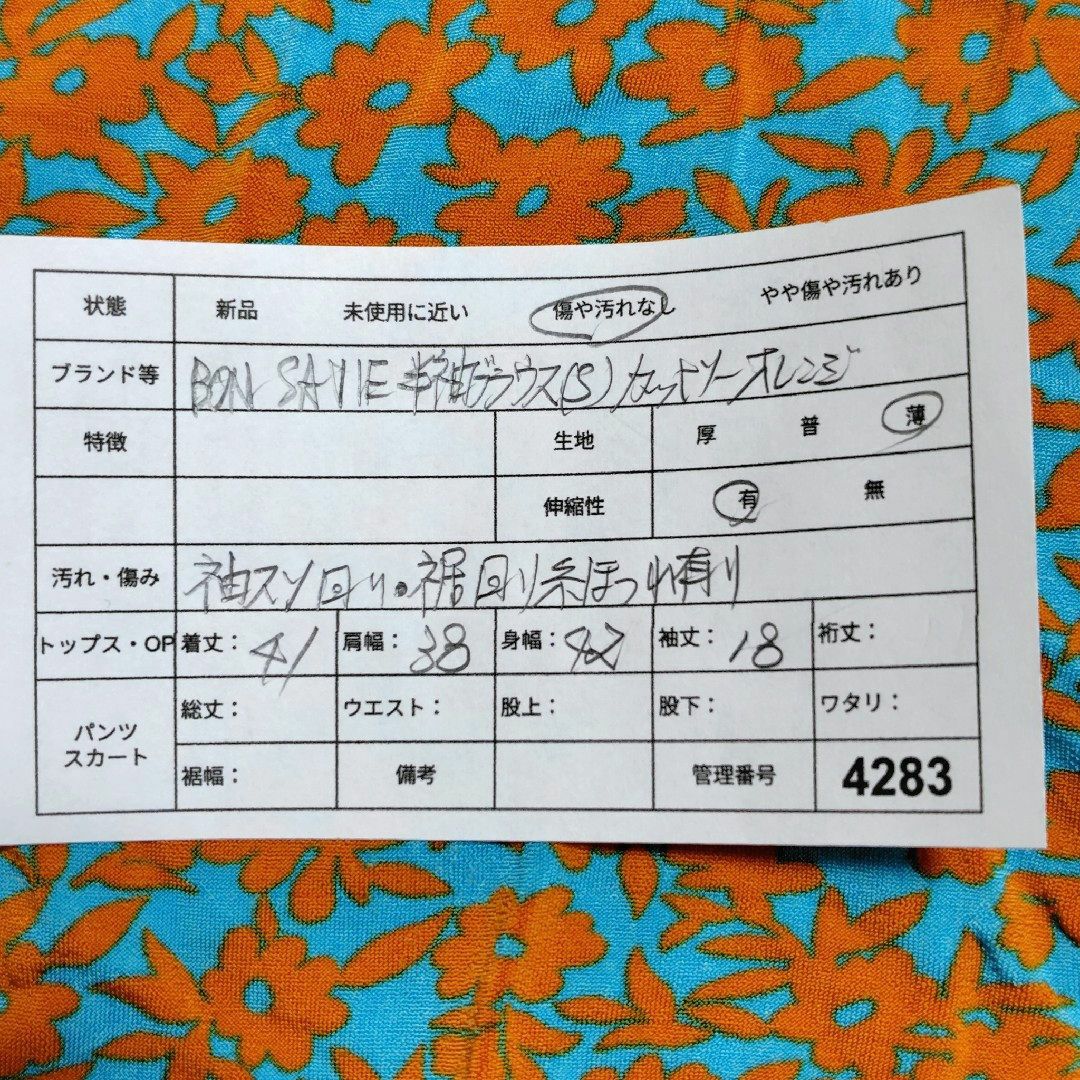 状態 新品 未使用に近い 傷や汚れなし やや傷や汚れあり
ブランド等 BON SAVIE 半袖ブラウス(S) カットソー オレンジ
特徴 生地 厚 普 薄
伸縮性 有 無
汚れ・傷み 袖スソ回り・裾回り糸ほつれ有り
トップス・OP 着丈：41 肩幅：38 身幅：42 袖丈：18 裄丈：
パンツ スカート 総丈： ウエスト： 股上： 股下： ワタリ：
裾幅： 備考 管理番号 4283